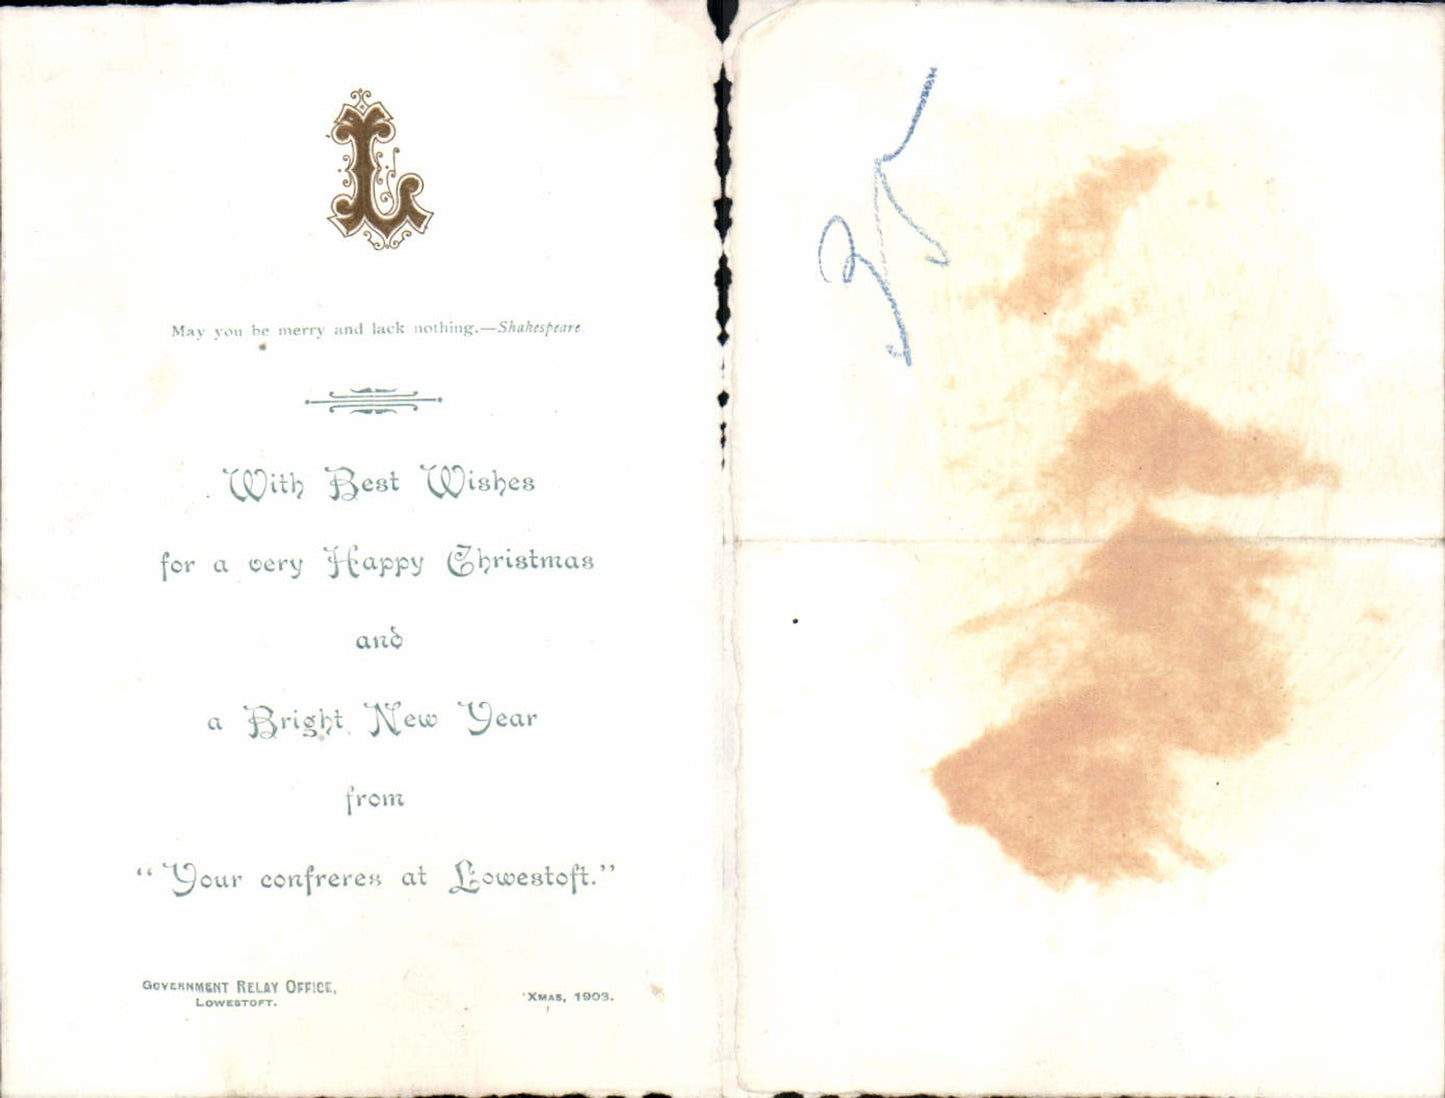 L
May you be merry and lack nothing.—Shakespeare.
With Best Wishes
for a very Happy Christmas
and
a Bright New Year
from
“Your confreres at Lowestoft.”
GOVERNMENT RELAY OFFICE,
LOWESTOFT.
'XMAS, 1903.